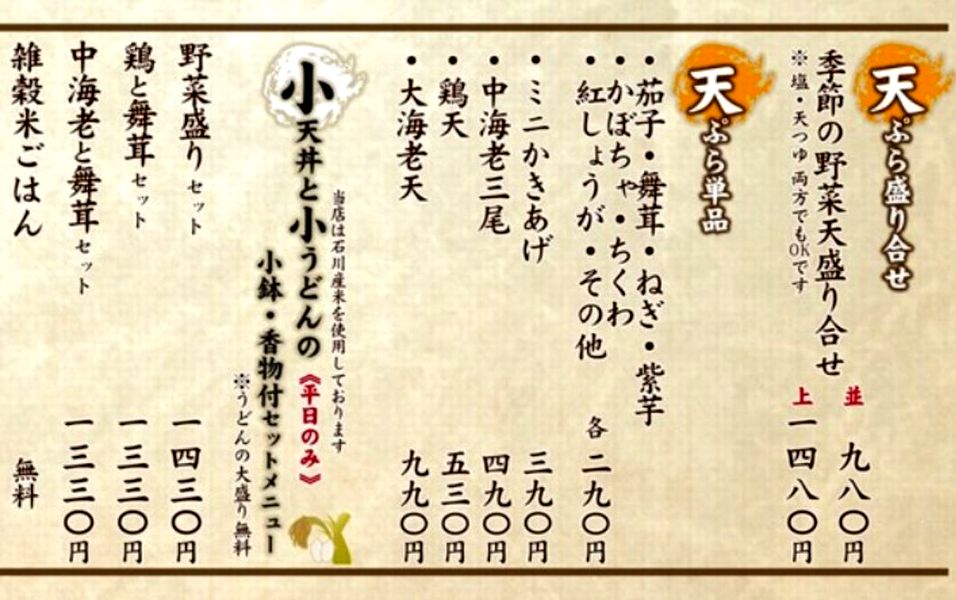 天ぷら盛り合せ
季節の野菜天盛り合せ
並 九八〇円
上 一四八〇円
※塩・天つゆ両方でもOKです
天ぷら単品
・茄子・舞茸・ねぎ・紫芋
・かぼちゃ・ちくわ
・紅しょうが・その他 各 二九〇円
・ミニかきあげ 三九〇円
・中海老三尾 四九〇円
・鶏天 五三〇円
・大海老天 九九〇円
当店は石川産米を使用しております
小天丼と小うどんの《平日のみ》
小鉢・香物付セットメニュー
※うどんの大盛り無料
野菜盛りセット 一四三〇円
鶏と舞茸セット 一三三〇円
中海老と舞茸セット 一三三〇円
雑穀米ごはん 無料